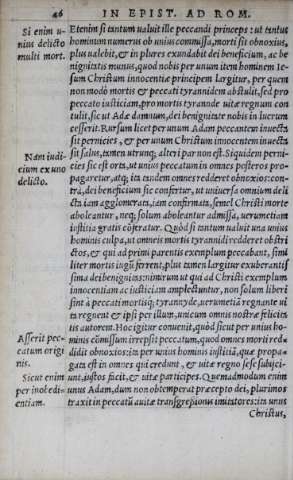 46 IN EPIST. AD ROM.
Si enim u-
nius delicto
multi mort.
Etenim si tantum ualuit ille peccandi princeps: ut tantus
hominum numerus ob unius commissa, morti sit obnoxius,
plus ualebit, & in plures exundabit dei beneficium, ac be
nignitatis munus, quod nobis per unum item hominem Ie-
sum Christum innocentiæ principem largitur, per quem
non modò mortis & peccati tyrannidem abstulit, sed pro
peccato iusticiam, pro mortis tyrannde uitæ regnum con
tulit, sic ut Adæ damnum, dei benignitate nobis in lucrum
cesserit. Rursum licet per unum Adam peccantem inuecta
sit pernicies, & per unum Christum innocentem inuecta
Nam iudi-
cium ex uno
delicto.
sit salus, tamen utrunq; alteri par non est. Siquidem perni-
cies sic est orta, ut unius peccatum in omnes posteros pro-
pagaretur, atq; ita tandem omnes redderet obnoxios: con-
trà, dei beneficium sic confertur, ut uniuersa omnium deli
cta iam agglomerata, iam confirmata, semel Christi morte
aboleantur, neq; solum aboleantur admissa, uerumetiam
iustitia gratis cõferatur. Quòd si tantum ualuit una unius
hominis culpa, ut omneis mortis tyrannidi redderet obstri
ctos, & qui ad primi parentis exemplum peccabant, simil
liter mortis iugũ ferrent, plus tamen largitur exuberantis
sima dei benignitas: nimirum ut qui ad Christi exemplum
innocentiam ac iusticiam amplectuntur, non solum liberi
sint à peccati mortisq; tyrannyde, uerumetiã regnante ui
ta regnent & ipsi per illum, unicum omnis nostræ felicita
tis autorem. Hoc igitur conuenit, quòd sicut per unius ho-
Asserit pec-
catum origi
nis.
minis cõmissum irrepsit peccatum, quod omnes morti red-
didit obnoxios: ita per unius hominis iustitiã, quæ propa-
gata est in omnes qui credunt, & uitæ regno sese subijci-
Sicut enim
per inobedi-
entiam.
unt, iustos facit, & uitæ participes. Quemadmodum enim
unus Adam, dum non obtemperat præcepto dei, plurimos
traxit in peccatũ auitæ transgressionis imitatores: ita unus
Christus,